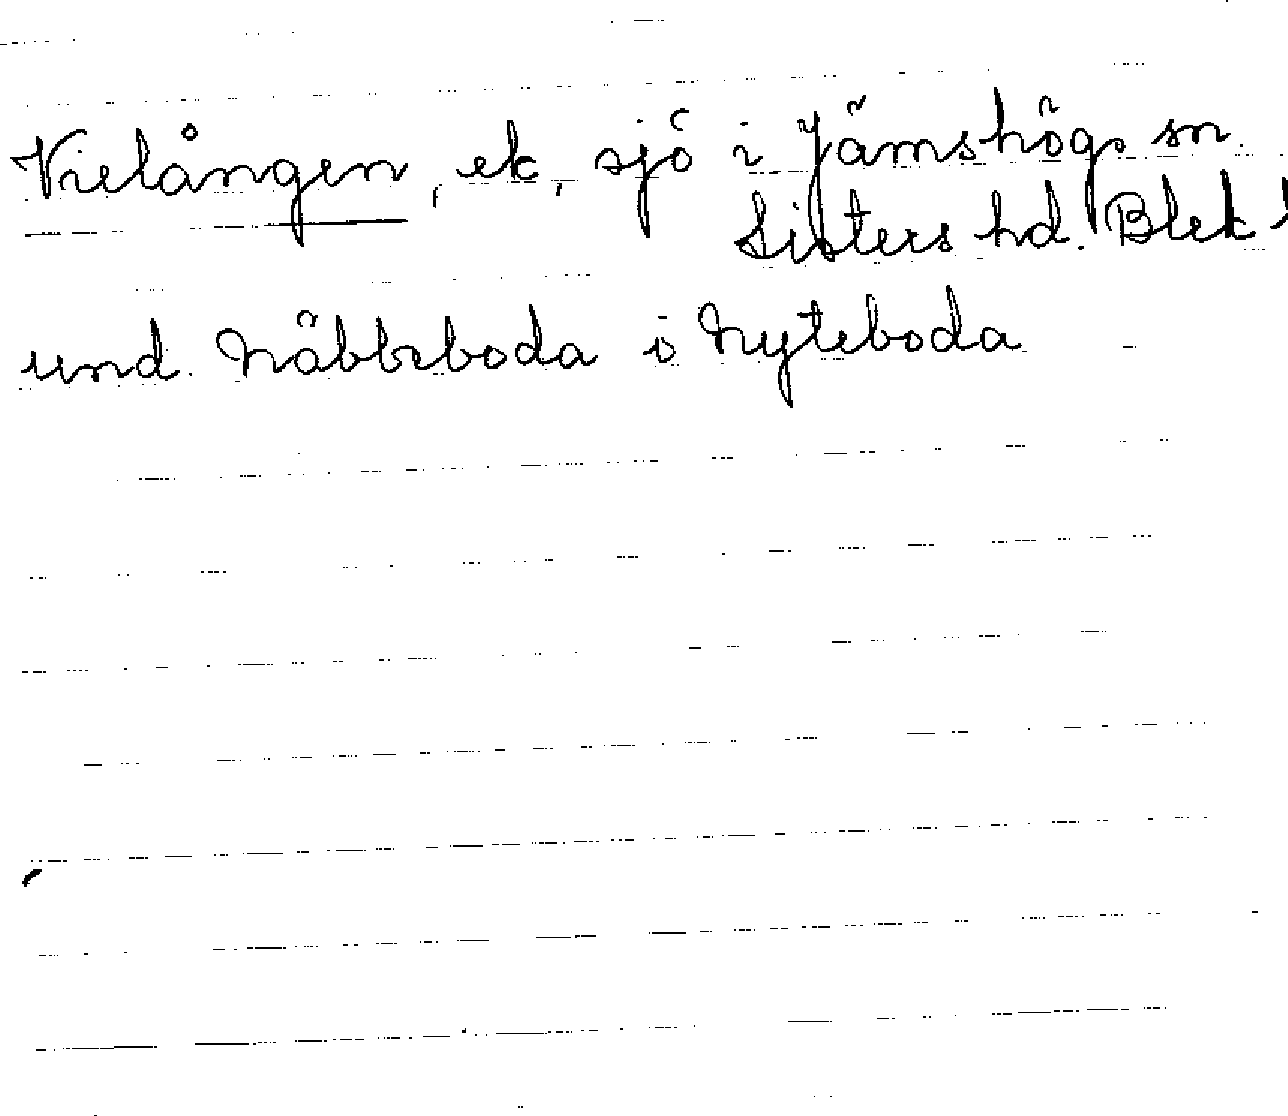 Vielången, ek, sjö i Jämshögs sn.
Listers hd. Blek l
und. Näbbeboda o. Nyteboda